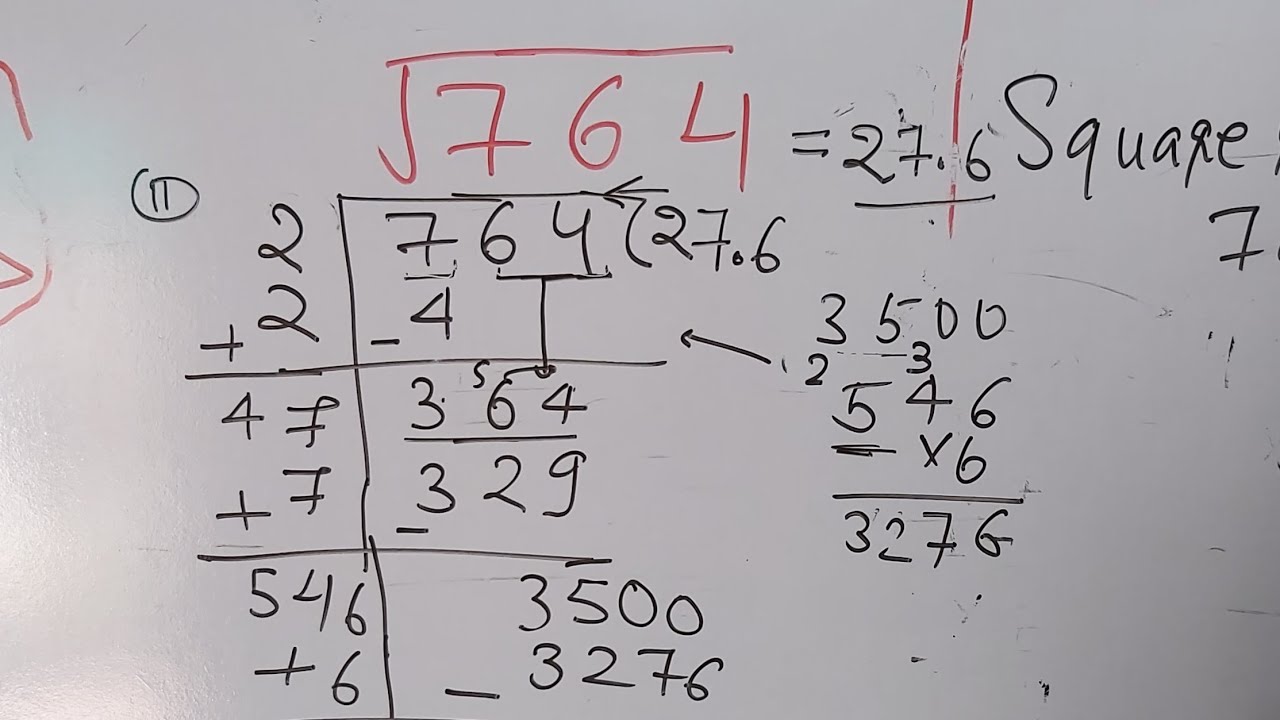 √764 = 27.6 Square
(II)
2 | 764 (27.6
+ 2 | - 4
47 | 3 5 64
+ 7 | - 329
546 | 3500
+ 6 | - 3276
7.
3500
2 3
546
× 6
3276